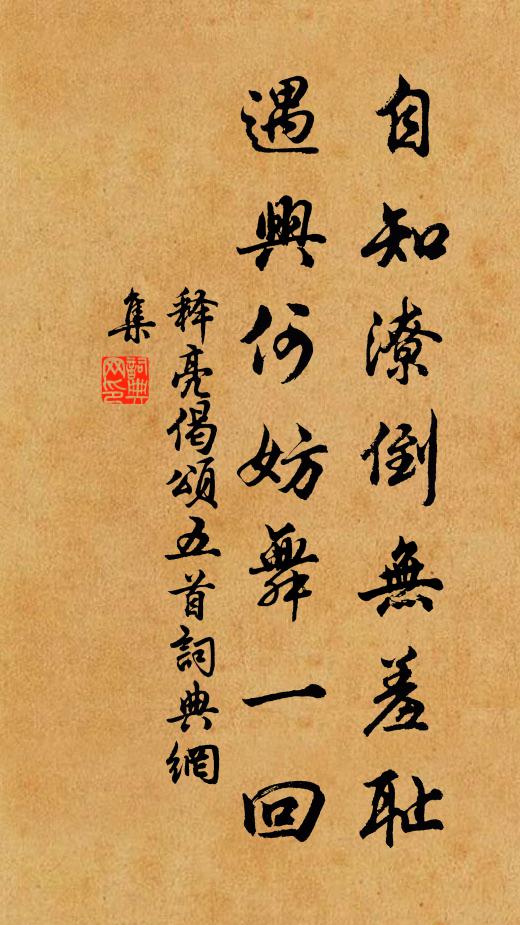 自知潦倒無羞耻
遇興何妨舞一回
释亮偈頌五首詞典網
集
詞典
网印